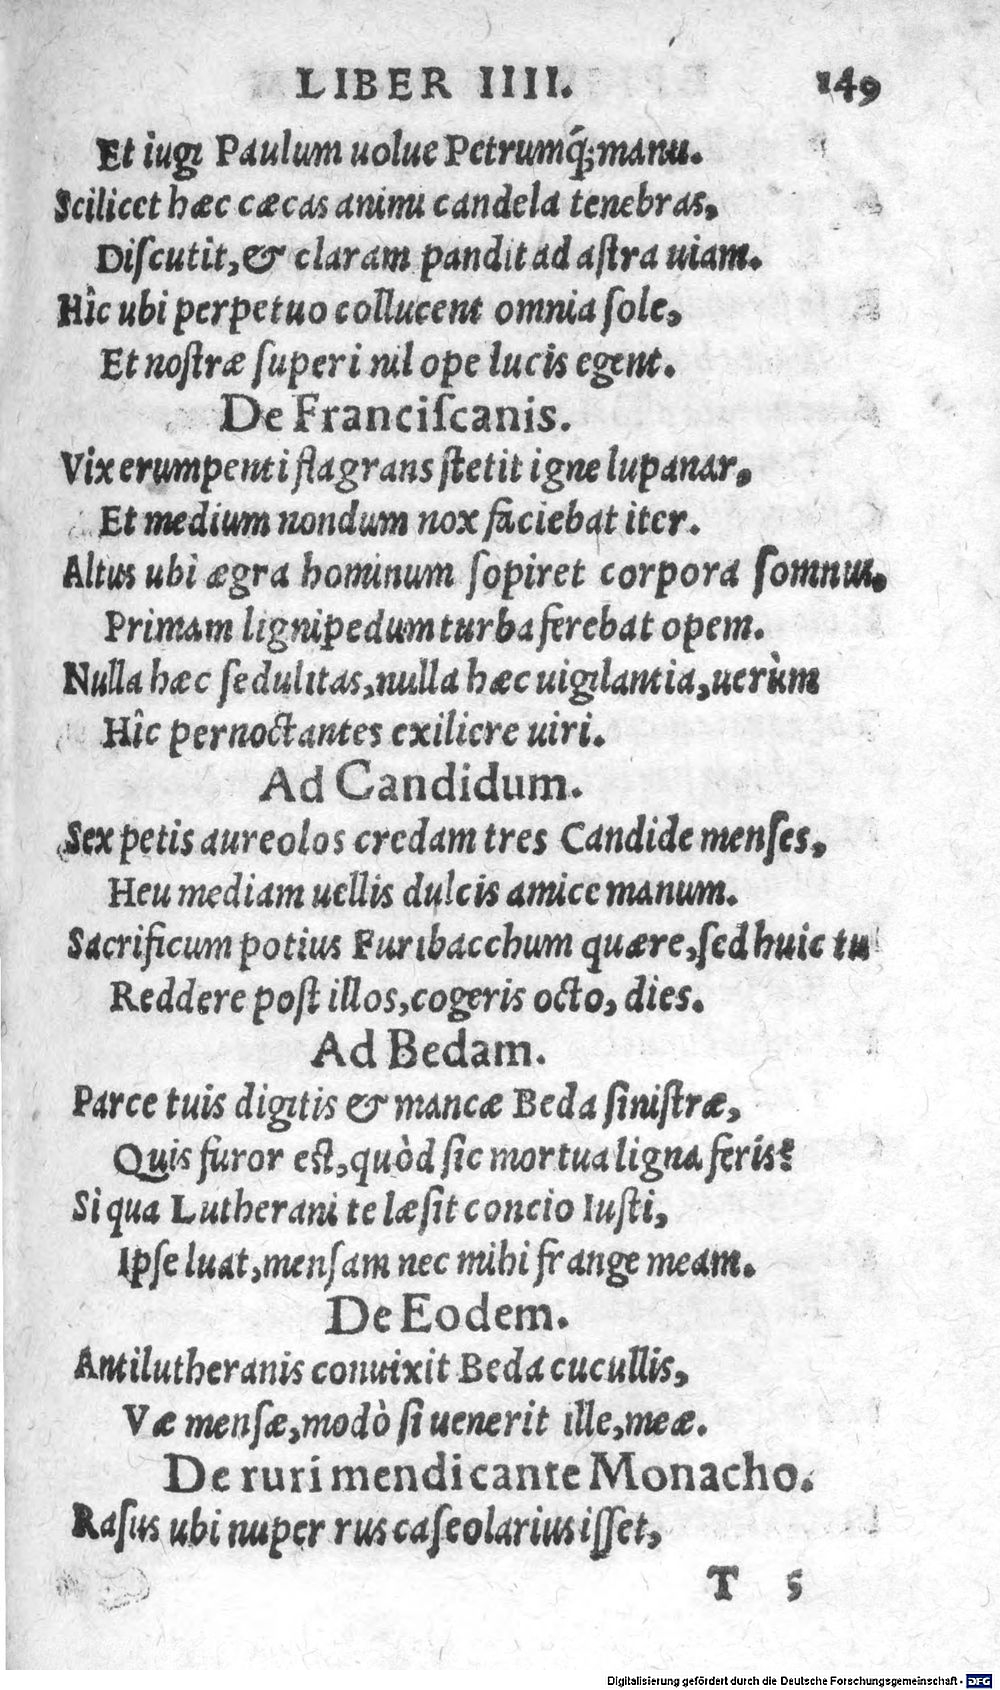 LIBER IIII. 149
Et iugi Paulum uolue Petrumq́; manu.
Scilicet hæc cæcas animi candela tenebras,
Diſcutit, & claram pandit ad aſtra uiam.
Hîc ubi perpetuo collucent omnia ſole,
Et noſtræ ſuperi nil ope lucis egent.
De Franciſcanis.
Vix erumpenti flagrans ſtetit igne lupanar,
Et medium nondum nox faciebat iter.
Altus ubi ægra hominum ſopiret corpora ſomnus,
Primam lignipedum turba ferebat opem.
Nulla hæc ſedulitas, nulla hæc uigilantia, uerùm
Hîc pernoctantes exiliere uiri.
Ad Candidum.
Sex petis aureolos credam tres Candide menſes,
Heu mediam uellis dulcis amice manum.
Sacrificum potius Furibacchum quære, ſed huic tu
Reddere poſt illos, cogeris octo, dies.
Ad Bedam.
Parce tuis digitis & mancæ Beda ſiniſtræ,
Quis furor eſt, quòd ſic mortua ligna feris?
Si qua Lutherani te læſit concio Iuſti,
Ipſe luat, menſam nec mihi frange meam.
De Eodem.
Antilutheranis conuixit Beda cucullis,
Væ menſæ, modò ſi uenerit ille, meæ.
De ruri mendicante Monacho.
Raſus ubi nuper rus caſeolarius iſſet,
T 5
Digitalisierung gefördert durch die Deutsche Forschungsgemeinschaft - DFG